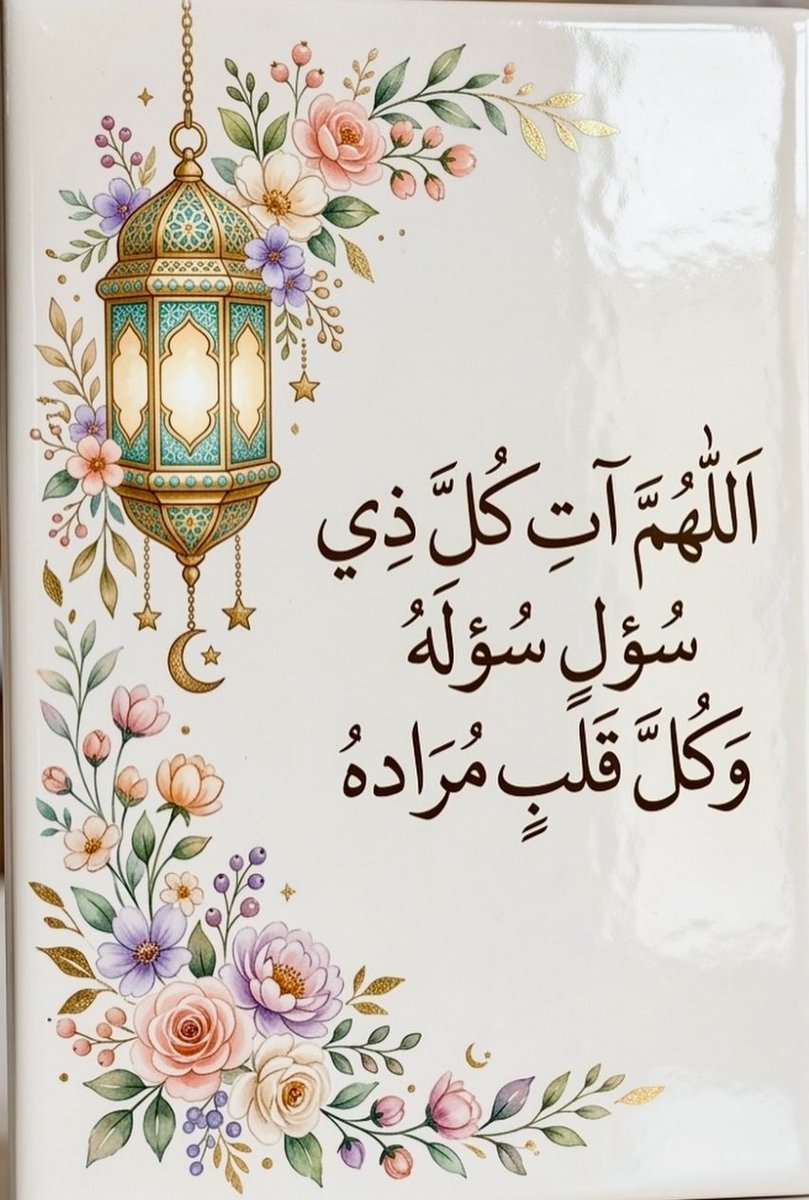 اَللّٰهُمَّ آتِ كُلَّ ذِي
سُؤلٍ سُؤلَهُ
وَكُلَّ قَلبٍ مُرَادهُ